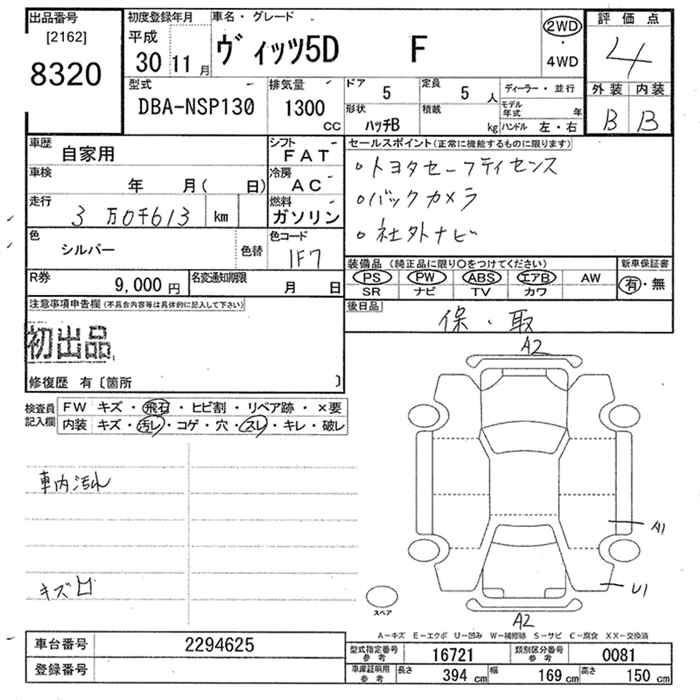 出品番号 初度登録年月 車名・グレード 評価点
[2162] 平成 ヴィッツ5D F 2WD
8320 30 11月 ・ 4
4WD
型式 排気量 ドア 5 定員 5人 ディーラー・並行 外装 内装
DBA-NSP130 1300 CC 形状 ハッチB 積載 kg モデル年式 年 B B
ハンドル 左・右
車歴 自家用 シフト FAT セールスポイント(正常に機能するものに限ります)
車検 年 月( 日) 冷房 AC ○トヨタセーフティセンス
走行 3万0千613 km 燃料 ガソリン ○バックカメラ
色 シルバー 色替 色コード 1F7 ○社外ナビ
R券 9,000円 名変通知期限 月 日 装備品(純正品に限り○をつけてください) 新車保証書
PS PW ABS エアB AW 有・無
SR ナビ TV カワ
注意事項申告欄(不具合内容等は具体的に記入して下さい) 後日品
初出品 保・取
修復歴 有〔箇所 〕
検査員記入欄 FW キズ・飛石・ヒビ割・リペア跡・×要
内装 キズ・汚レ・コゲ・穴・スレ・キレ・破レ
A2
車内汚れ
A1
キズ凹
U1
スペア
A2
A−キズ E−エクボ U−凹み W−補修跡 S−サビ C−腐食 XX−交換済
車台番号 2294625 型式指定番号参考 16721 類別区分番号参考 0081
登録番号 車庫証明用参考 長さ 394 cm 幅 169 cm 高さ 150 cm